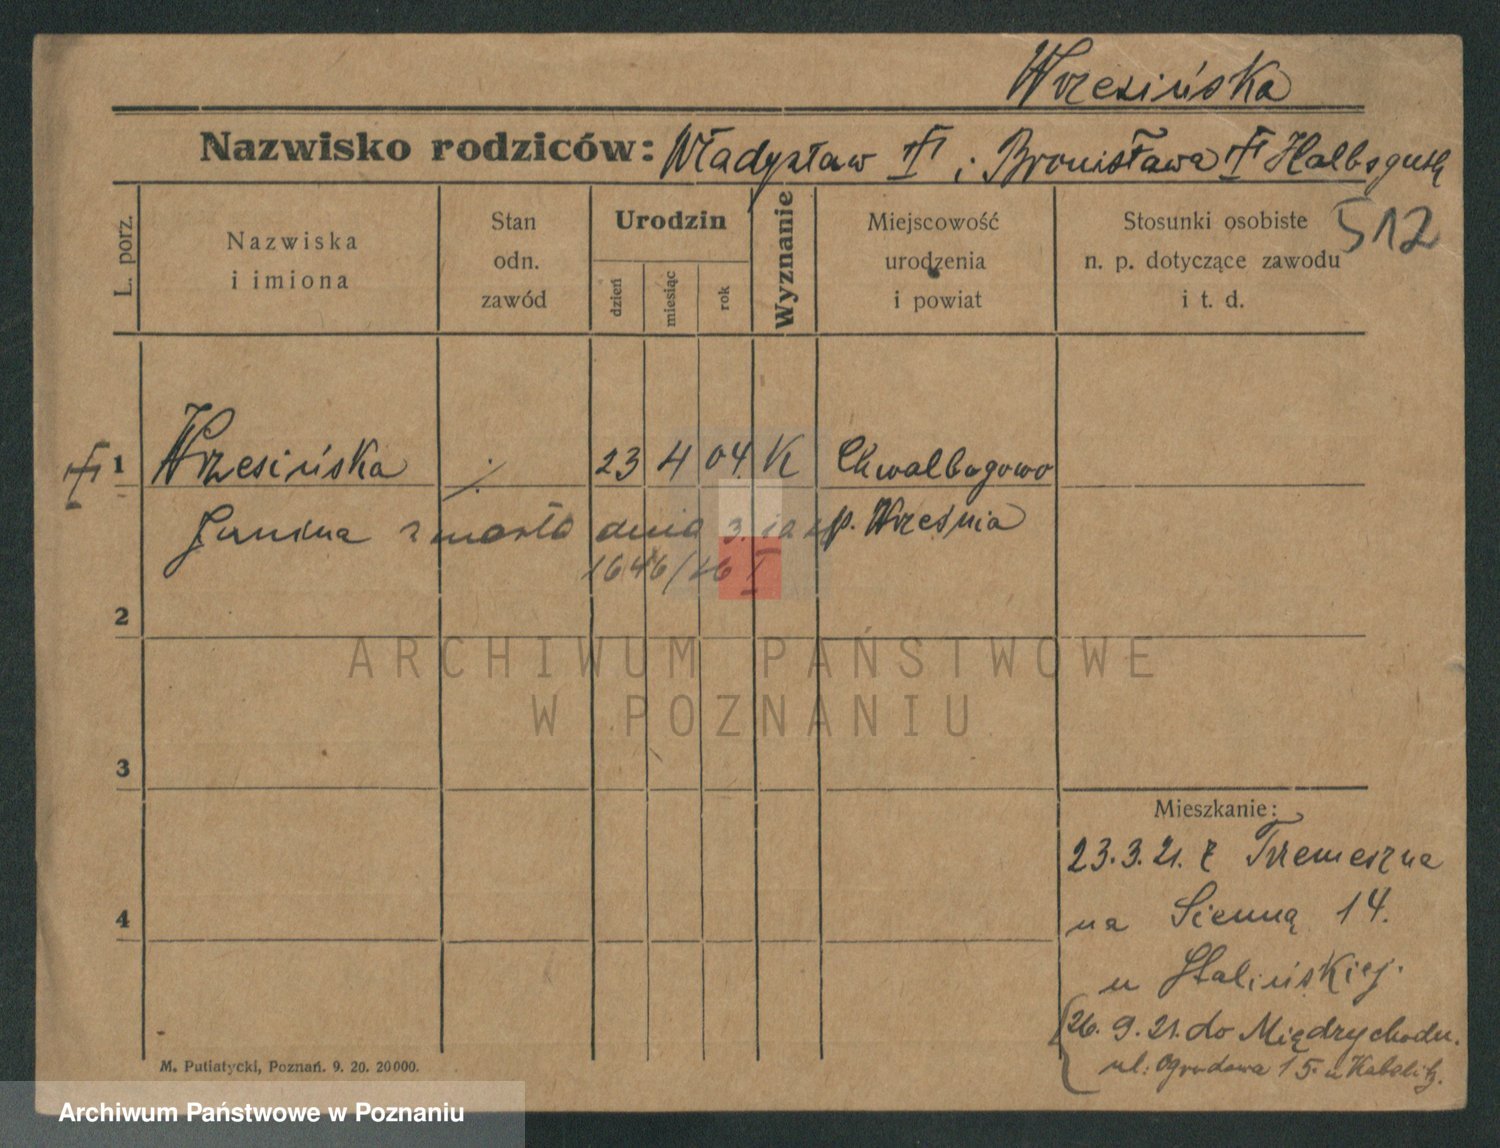 Wrzesińska
Nazwisko rodziców: Władysław i Bronisława
512
L. porz.
Nazwiska
i imiona
Stan
odn.
zawód
Urodzin
dzień
miesiąc
rok
Wyznanie
Miejscowość
urodzenia
i powiat
Stosunki osobiste
n. p. dotyczące zawodu
i t. d.
1 Wrzesińska 23 4 04. K Chwalbogowo
Janina zmarła dnia p. Września
1646/26 I
2
3
4
ARCHIWUM PAŃSTWOWE
W POZNANIU
Mieszkanie:
23.3.21. z Trzemeszna
na Sienną 14.
u Stalińskiej.
26. 9. 21. do Międzychodu.
ul: Ogrodowa 15. u
M. Putiatycki, Poznań. 9. 20. 20000.
Archiwum Państwowe w Poznaniu